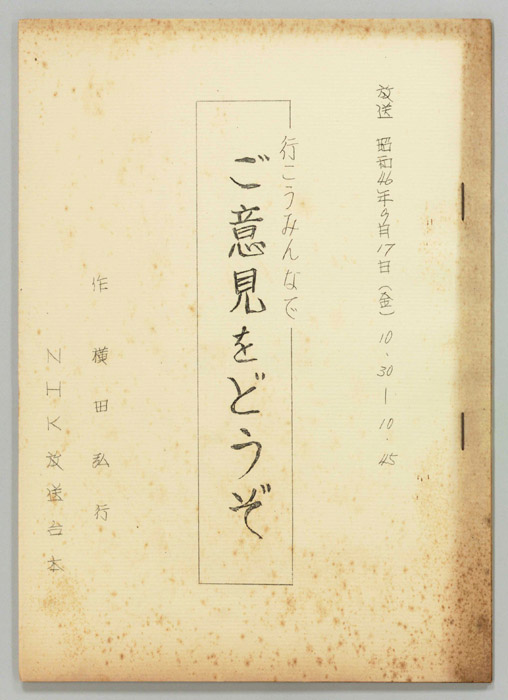 放送 昭和46年9月17日(金)10.30―10.45
行こうみんなで
ご意見をどうぞ
作 横田弘行
NHK放送台本